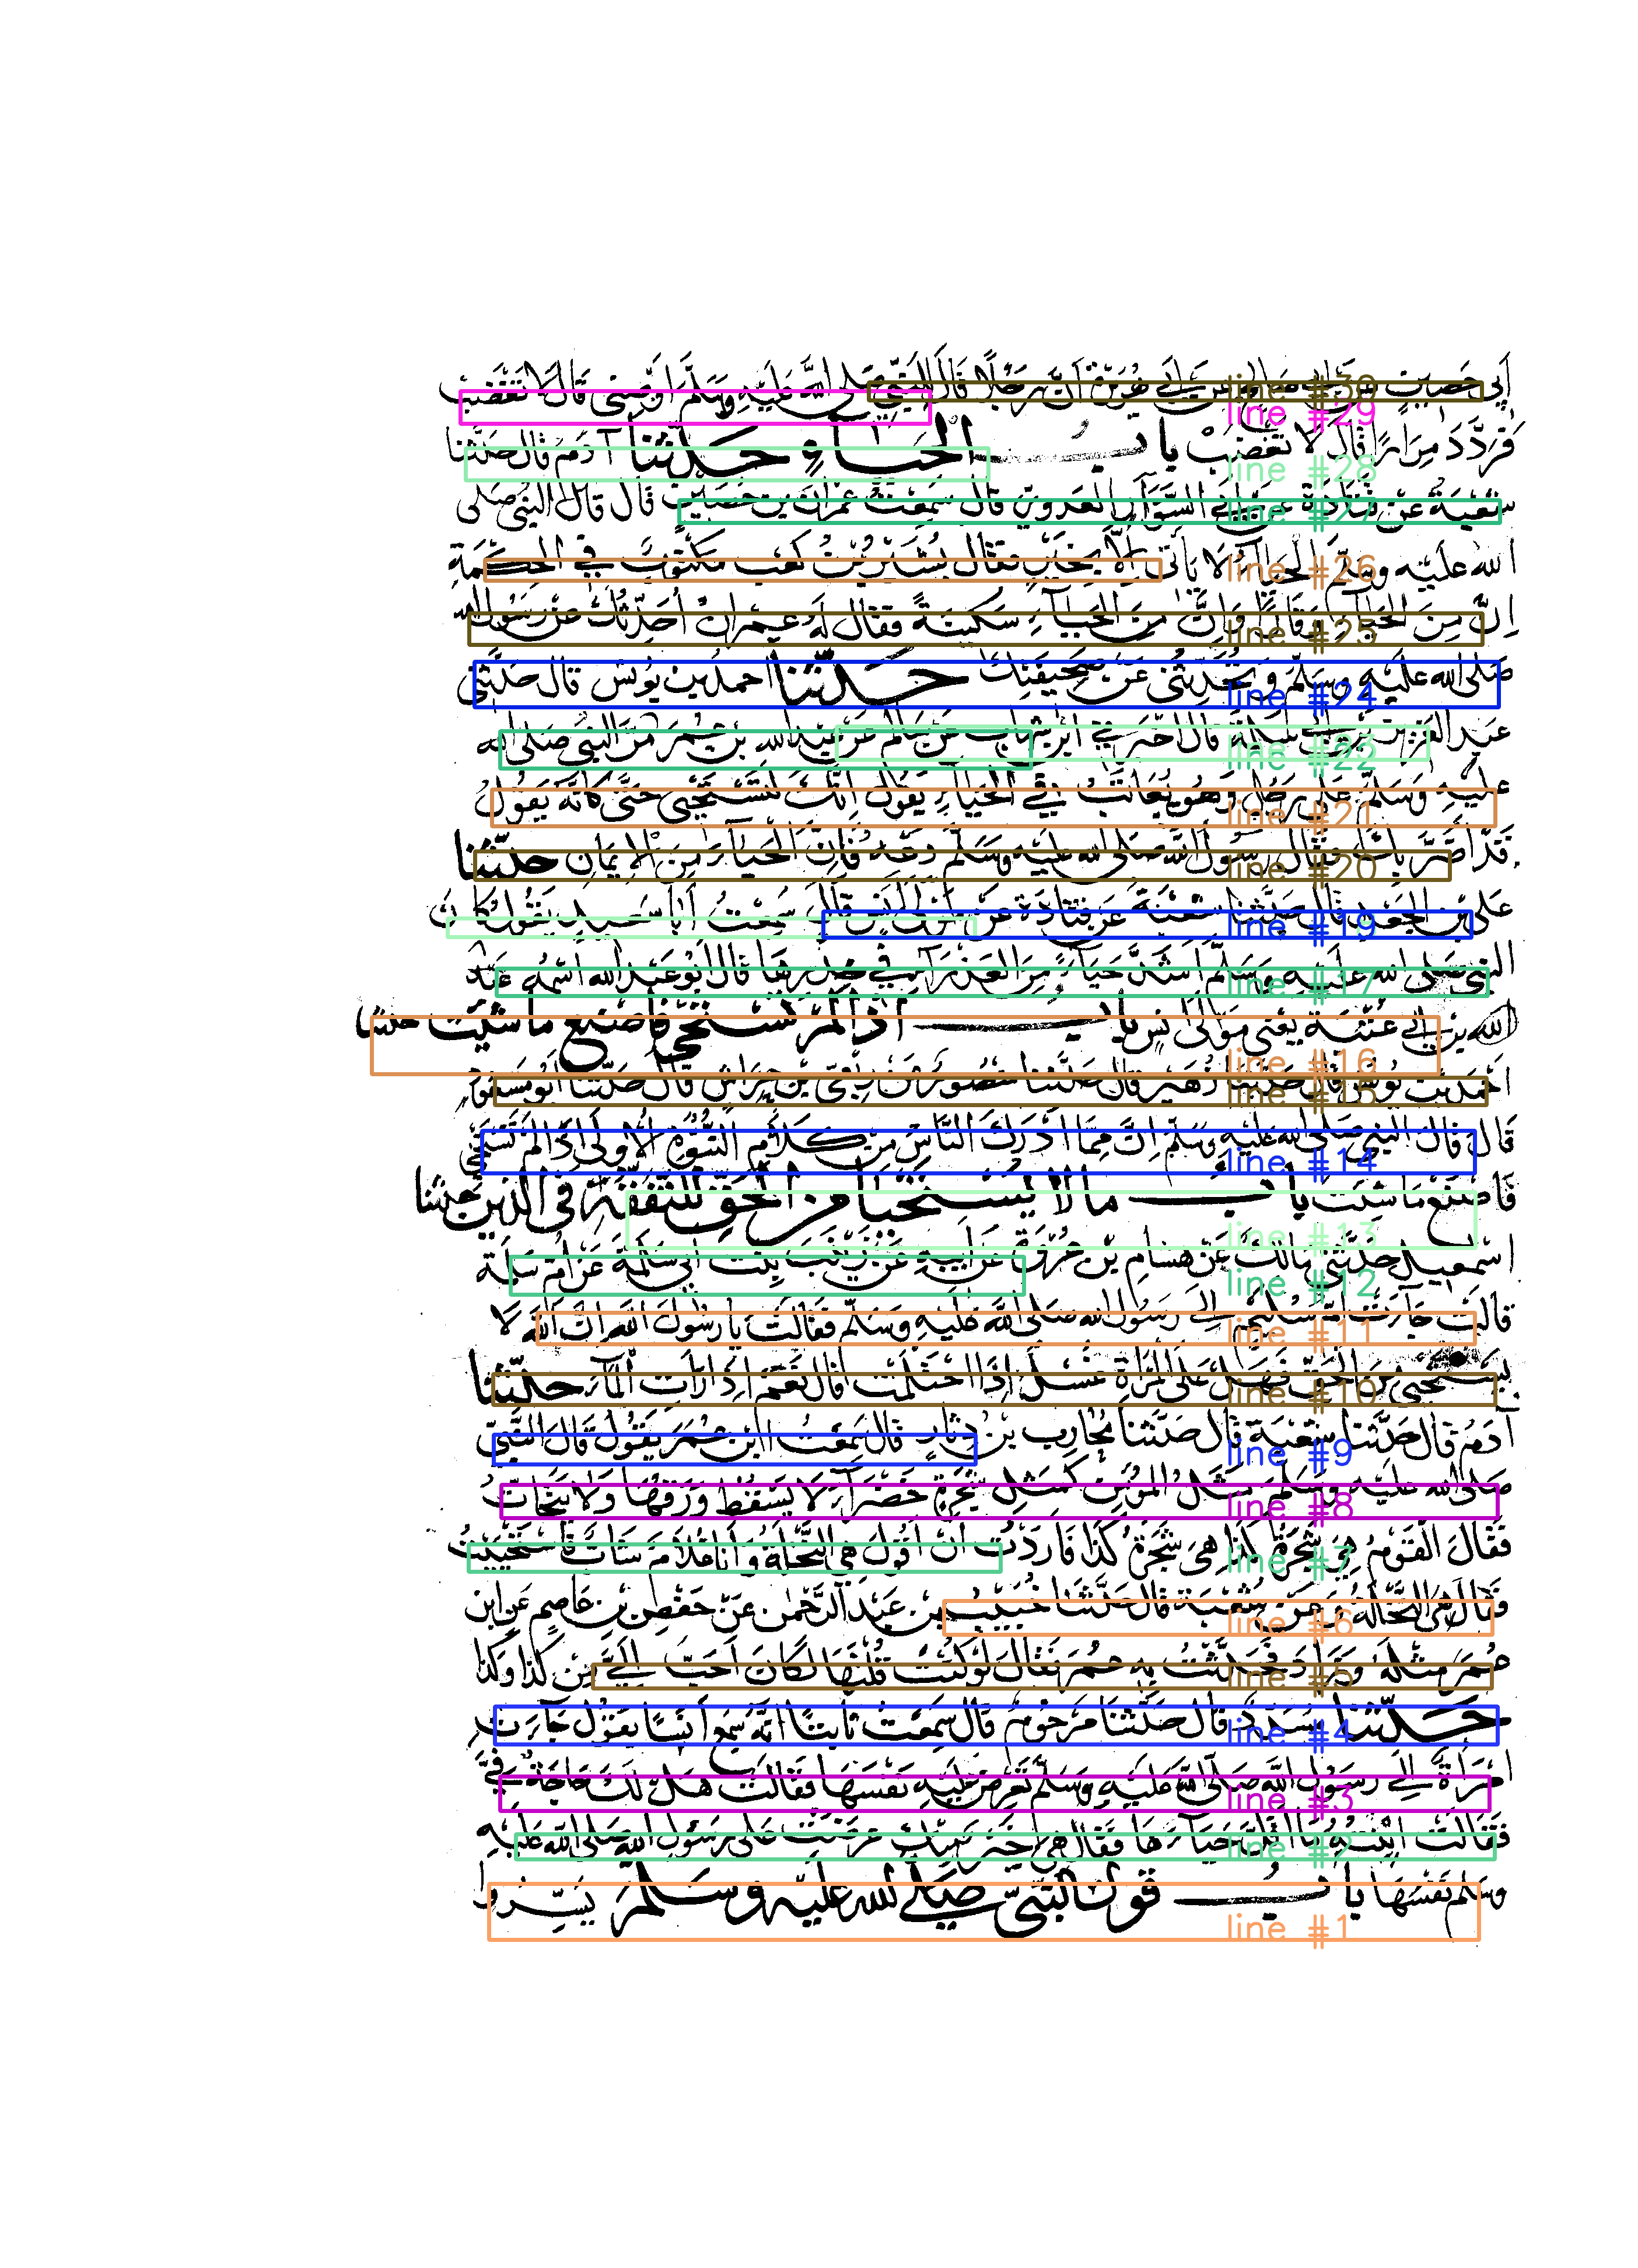 أَبِي حَصِينٍ عَنْ أَبِي صَالِحٍ عَنْ أَبِي هُرَيْرَةَ أَنَّ رَجُلًا قَالَ لِلنَّبِيِّ صَلَّى اللَّهُ عَلَيْهِ وَسَلَّمَ أَوْصِنِي قَالَ لَا تَغْضَبْ
فَرَدَّدَ مِرَارًا قَالَ لَا تَغْضَبْ باب الحياء حدثنا آدم قال حدثنا
شعبة عن قتادة عن أبي السوار العدوي قال سمعت عمران بن حصين قال قال النبي صلى
الله عليه وسلم الحياء لا يأتي إلا بخير فقال بشير بن كعب مكتوب في الحكمة
إن من الحياء وقارا وإن من الحياء سكينة فقال له عمران أحدثك عن رسول الله
صلى الله عليه وسلم وتحدثني عن صحيفتك حدثنا احمد بن يونس قال حدثني
عبد العزيز بن أبي سلمة قال اخبرني ابن شهاب عن سالم عن عبد الله بن عمر مر النبي صلى الله
عليه وسلم على رجل وهو يعاتب في الحياء يقول انك لتستحيي حتى كأنه يقول
قد أضر بك فقال رسول الله صلى الله عليه وسلم دعه فإن الحياء من الإيمان حدثنا
علي بن الجعد قال حدثنا شعبة عن قتادة عن مولى أنس قال سمعت أبا سعيد يقول كان
النبي صلى الله عليه وسلم أشد حياء من العذراء في خدرها قال أبو عبد الله اسمه عبد
الله بن أبي عتبة يعني مولى أنس باب اذا لم تستحي فاصنع ما شئت حدثنا
احمد بن يونس قال حدثنا زهير قال حدثنا منصور عن ربعي بن حراش قال حدثنا أبو مسعود
قال قال النبي صلى الله عليه وسلم إن مما أدرك الناس من كلام النبوة الأولى إذا لم تستحي
فاصنع ما شئت باب ما لا يستحيا من الحق للتفقه في الدين حدثنا
اسمعيل حدثني مالك عن هشام بن عروة عن أبيه عن زينب بنت أبي سلمة عن ام سلمة
قالت جاءت ام سليم إلى رسول الله صلى الله عليه وسلم فقالت يا رسول الله إن الله لا
يستحيي من الحق فهل على المرأة غسل إذا احتلمت فقال نعم إذا رأت الماء حدثنا
آدم قال حدثنا شعبة قال حدثنا محارب بن دثار قال سمعت ابن عمر يقول قال النبي
صلى الله عليه وسلم مثل المؤمن كمثل شجرة خضراء لا يسقط ورقها ولا يتحات
فقال القوم هي شجرة كذا هي شجرة كذا فأردت أن أقول هي النخلة وأنا غلام شاب فاستحييت
فقال هي النخلة وعن شعبة قال حدثنا خبيب بن عبد الرحمن عن حفص بن عاصم عن ابن
عمر مثله وزاد فحدثت به عمر فقال لو كنت قلتها لكان أحب إلي من كذا وكذا
حدثنا مسدد قال حدثنا مرحوم قال سمعت ثابتا انه سمع أنسا يقول جاءت
امرأة إلى رسول الله صلى الله عليه وسلم تعرض عليه نفسها فقالت هل لك حاجة في
فقالت ابنته ما اقل حياءها فقال هي خير منك عرضت على رسول الله صلى الله عليه
وسلم نفسها باب قول النبي صلى الله عليه وسلم يسروا
line #30
line #29
line #28
line #27
line #26
line #25
line #24
line #22
line #21
line #20
line #19
line #17
line #16
line #15
line #14
line #13
line #12
line #11
line #10
line #9
line #8
line #7
line #6
line #5
line #4
line #3
line #2
line #1